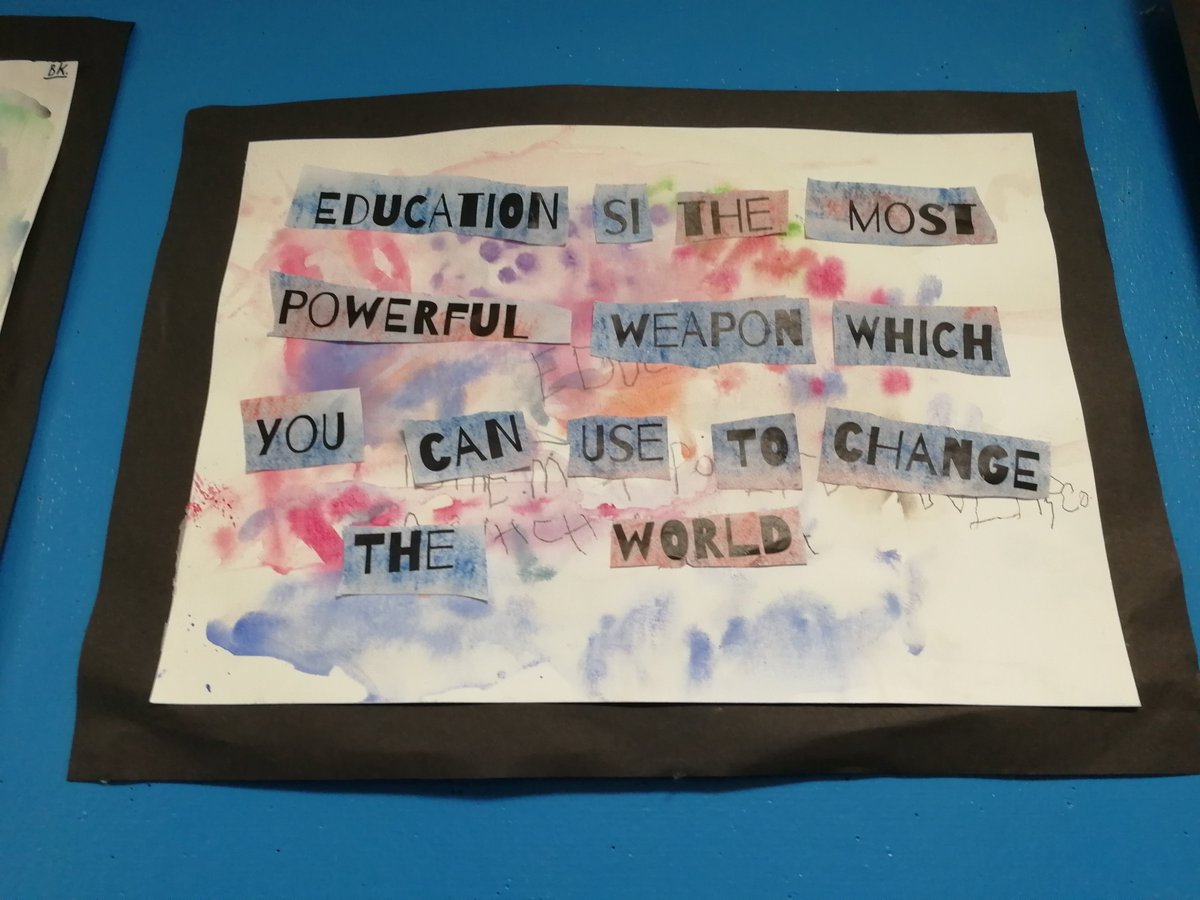 BK.
EDUCATION SI THE MOST
POWERFUL WEAPON WHICH
YOU CAN USE TO CHANGE
THE WORLD.